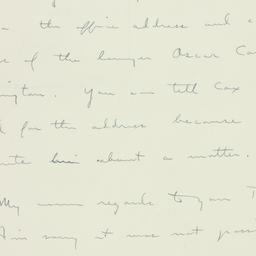 the office address and
of the lawyer Oscar
You can tell Cox
for the address because
him about a matter.
My regards to you
I'm sorry it was not